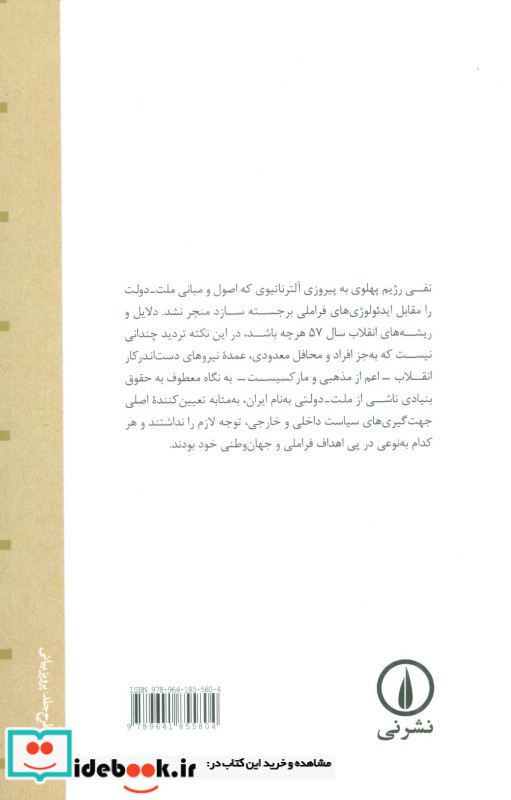 نفـی رژیم پهلوی به پیروزی آلترناتیوی که اصول و مبانی ملت‌ـ‌دولت
را مقابل ایدئولوژی‌های فراملی برجسته سـازد منجر نشد. دلایل و
ریشه‌های انقلاب سال ۵۷ هرچه باشد، در این نکته تردید چندانی
نیست که به‌جز افراد و محافل معدودی، عمدهٔ نیروهای دست‌اندرکار
انقلاب ـ اعم از مذهبی و مارکسیست ـ به نگاه معطوف به حقوق
بنیادی ناشی از ملت‌ـ‌دولتی به‌نام ایران، به‌مثابه تعیین‌کنندهٔ اصلی
جهت‌گیری‌های سیاست داخلی و خارجی، توجه لازم را نداشتند و هر
کدام به‌نوعی در پی اهداف فراملی و جهان‌وطنی خود بودند.
طرح جلد: پرویز بیانی
ISBN 978-964-185-580-4
9 789641 855804
نشرنی
مشاهده و خرید این کتاب در:
idebook.ir